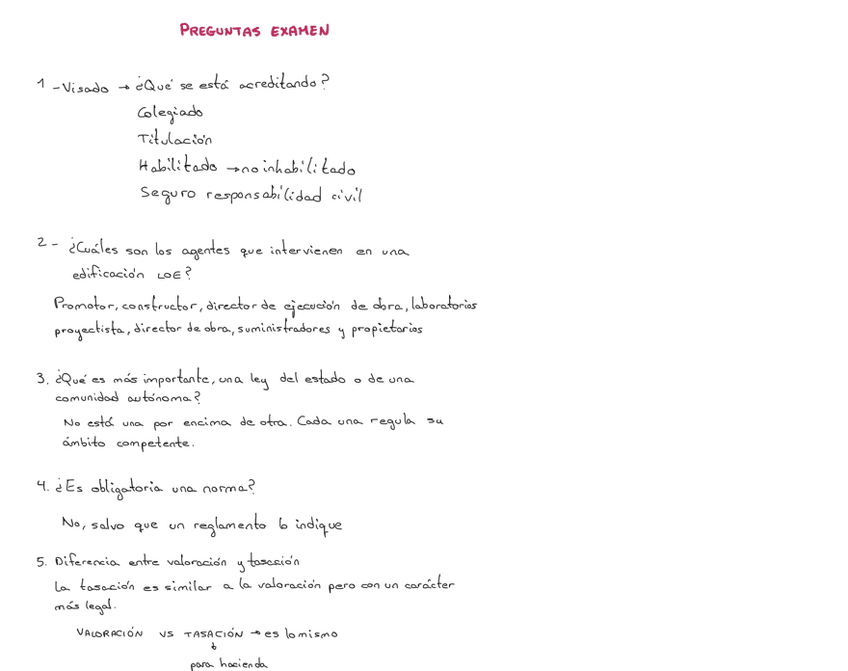 PREGUNTAS EXAMEN
1 - Visado → ¿Qué se está acreditando?
Colegiado
Titulación
Habilitado → no inhabilitado
Seguro responsabilidad civil
2 - ¿Cuáles son los agentes que intervienen en una
edificación LOE?
Promotor, constructor, director de ejecución de obra, laboratorios
proyectista, director de obra, suministradores y propietarios
3. ¿Qué es más importante, una ley del estado o de una
comunidad autónoma?
No está una por encima de otra. Cada una regula su
ámbito competente.
4. ¿Es obligatoria una norma?
No, salvo que un reglamento lo indique
5. Diferencia entre valoración y tasación
La tasación es similar a la valoración pero con un carácter
más legal.
VALORACIÓN VS TASACIÓN → es lo mismo
↓
para hacienda